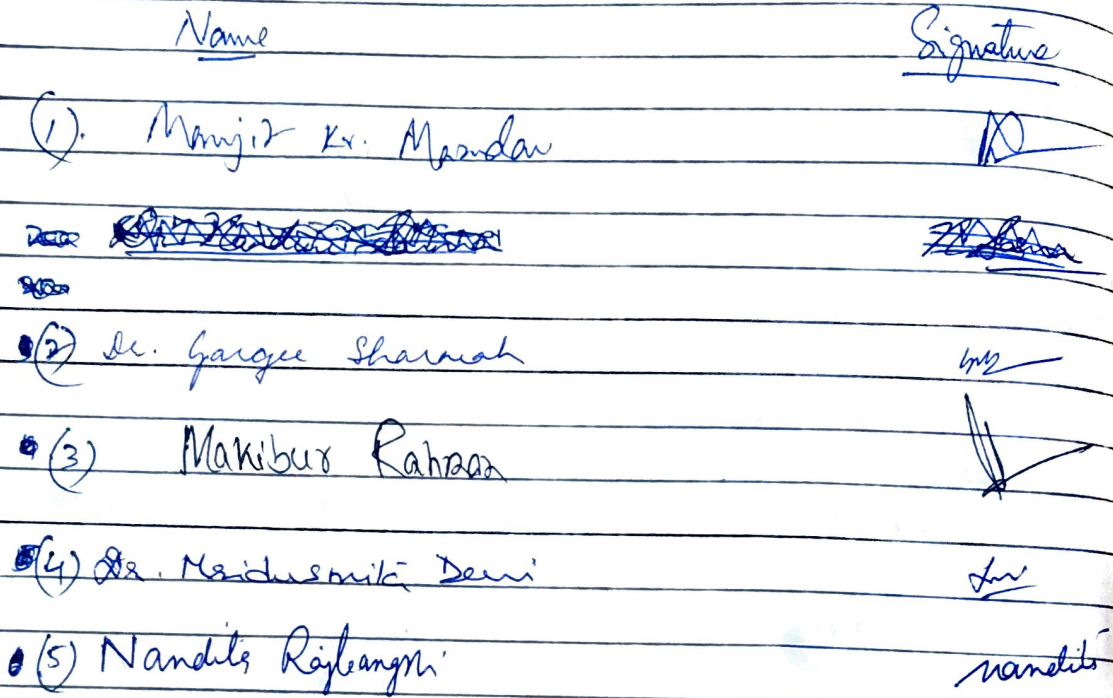 Name Signature
(1). Manjit Kr. Mazumdar
(2) Dr. Gargee Sharmah
(3) Makibur Rahman
(4) Dr. Mridusmita Devi
(5) Nandita Rajbangshi nandita